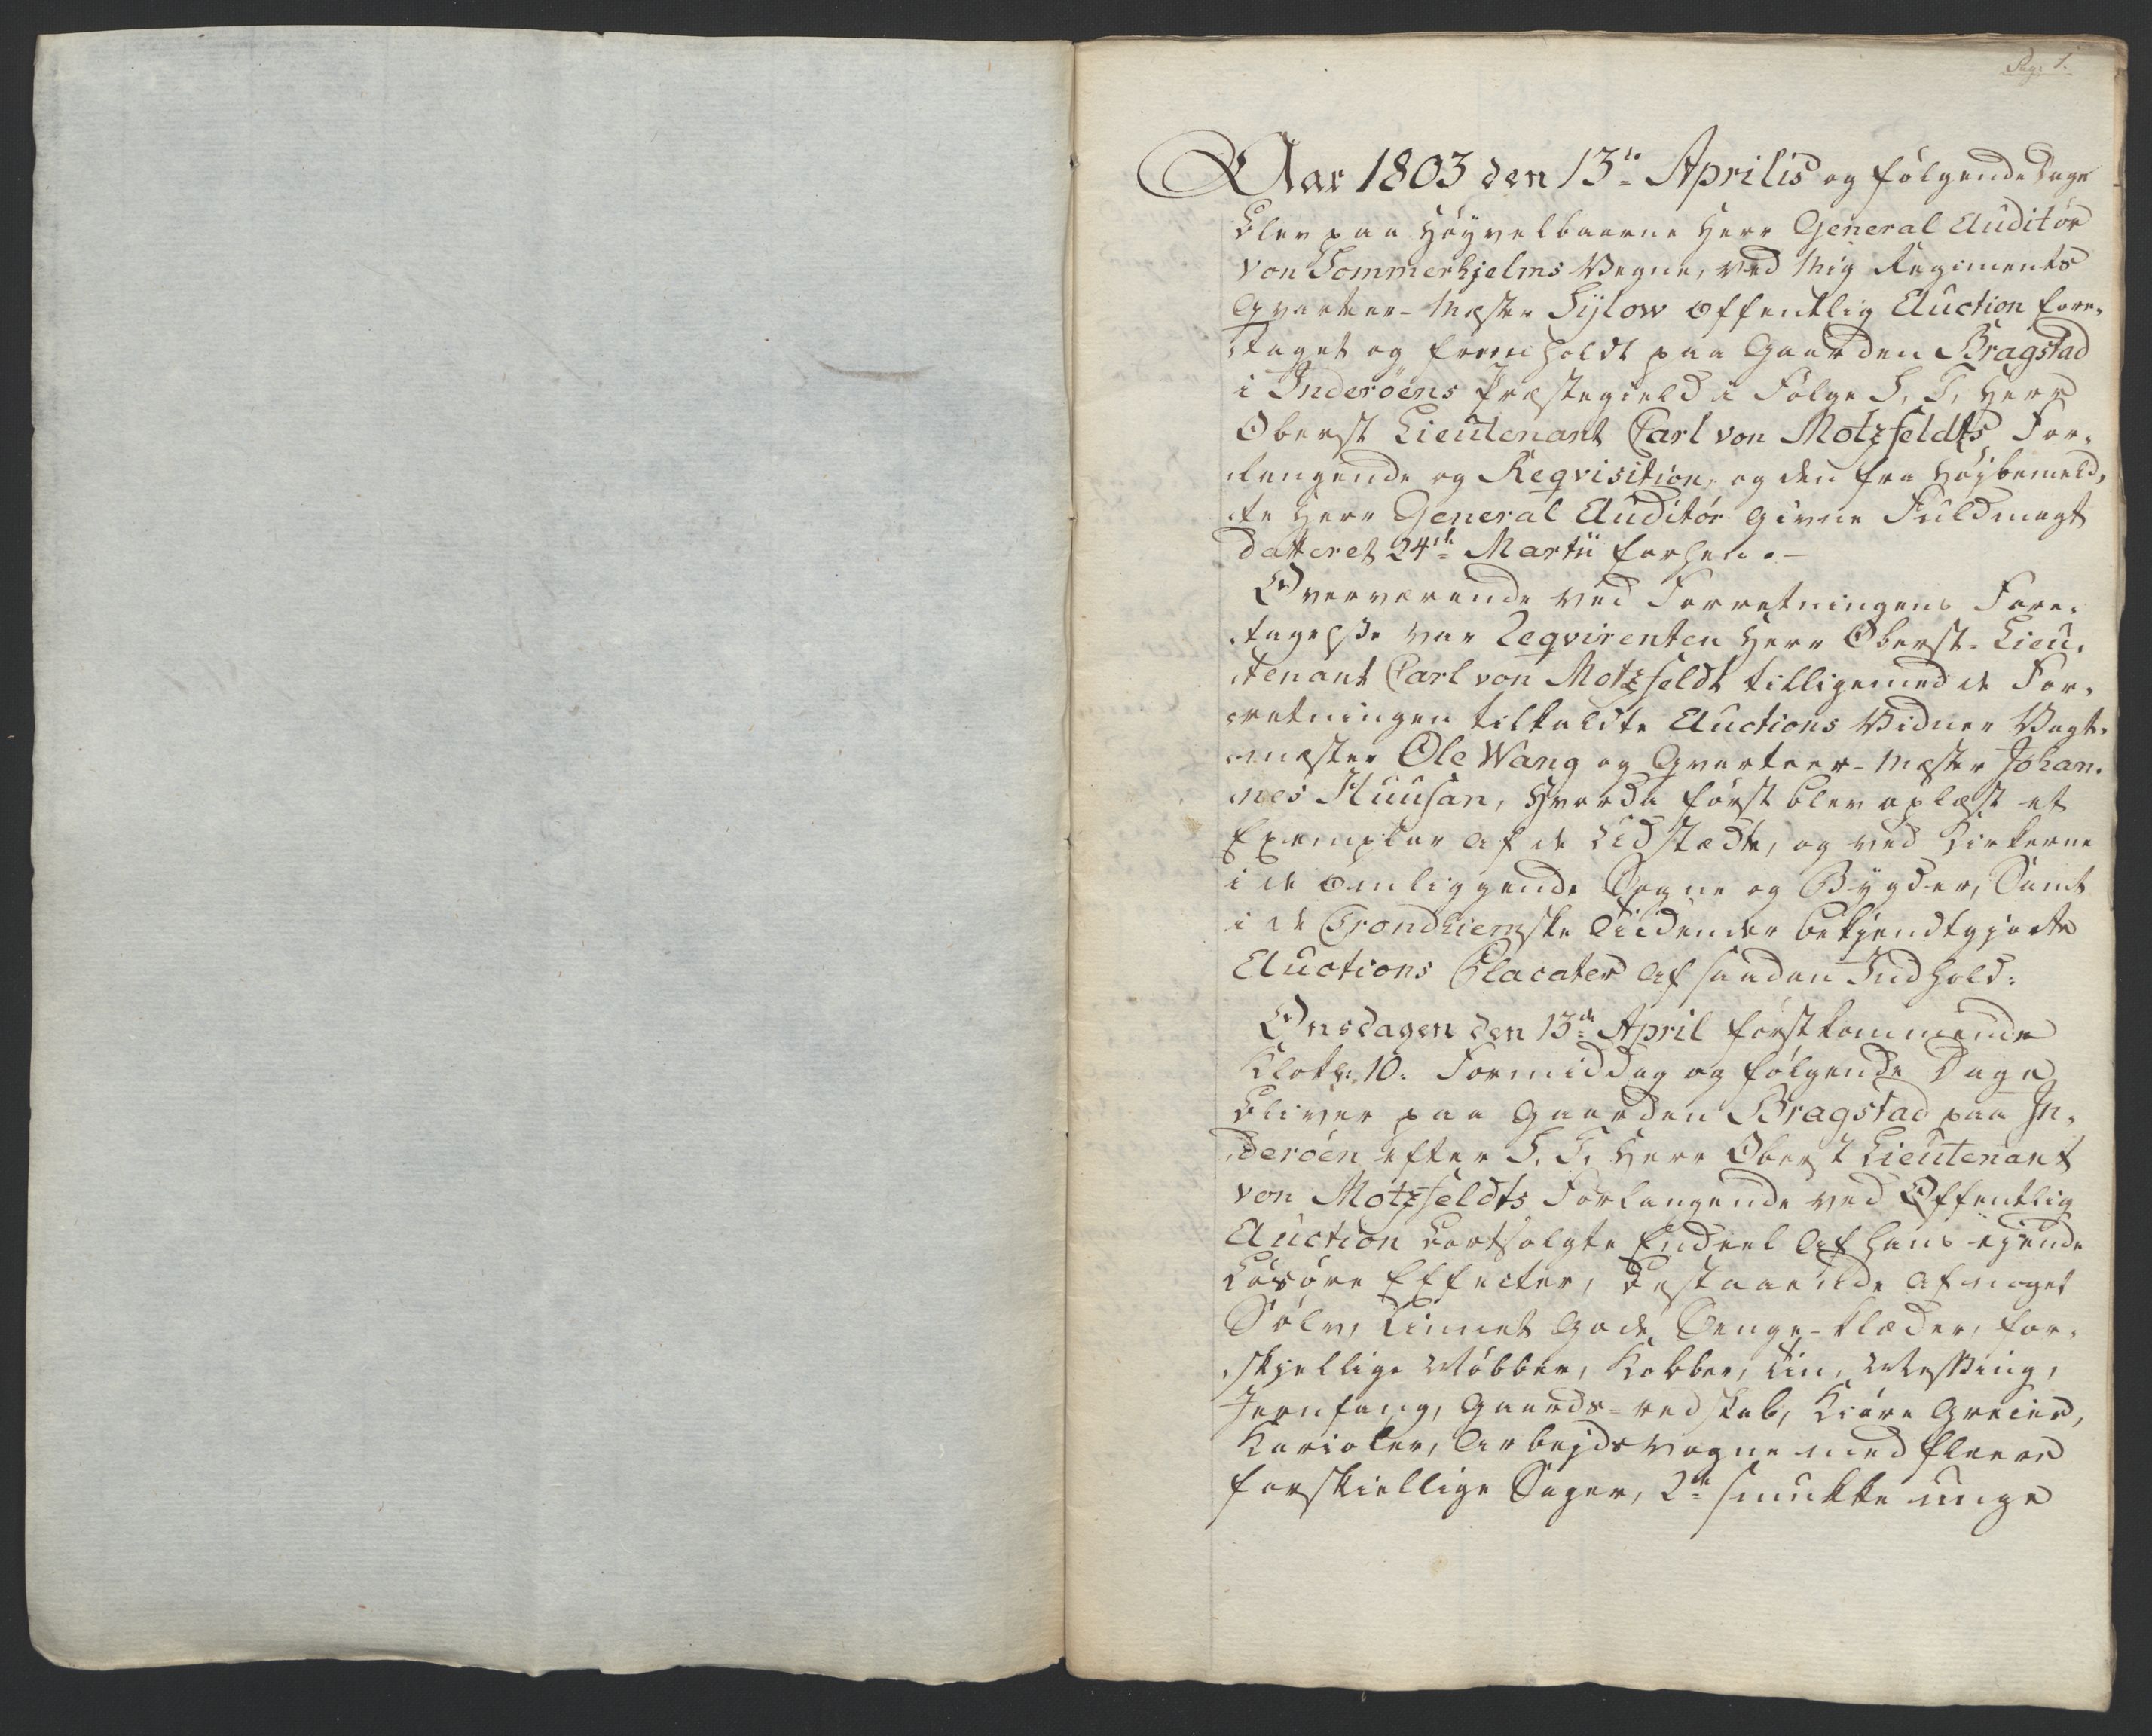 Pag: 1.
Aar 1803 den 13de Aprilis og følgende Dage
blev paa Høyvelbaarne Herr General Auditør
von Sommerhjelms Vegne, ved mig Regiments
Qvarteer-Mester Sylow offentlig Auction fore-
taget og fremholdt paa Gaarden Bragstad
i Inderøens Præstegield i Følge S. T. Herr
Oberst Lieutenant Carl von Motzfeldts For-
langende og Reqvisition, og den fra Høybemeld-
te Herr General Auditør givne Fuldmagt
datteret 24de Martii forhen. —
Overværende ved Forretningens Fore-
tagelse var Reqvirenten Herr Oberst-Lieu-
tenant Carl von Motzfeldt tilligemed de For-
retningen tilkaldte Auctions Vidner Vagt-
mester Ole Wang og Qvarteer-Mester Johan-
nes Huusan, hvorda først blev oplæst et
Exemplar af de udstædte, og ved Kirkerne
i de omliggende Sogne og Bygder, samt
i de Trondhiemske Tiidender bekjendtgjorte
Auctions Placater af saadan Indhold:
Onsdagen den 13de April førstkommende
Klokk: 10. Formiddag og følgende Dage
bliver paa Gaarden Bragstad paa In-
derøen efter S. T. Herr Oberst Lieutenant
von Motzfeldts Forlangende ved Offentlig
Auction bortsolgte Endeel af hans ejende
Løsøre Effecter, bestaaende af noget
Sølv, Linnet gode Senge-klæder, for-
skjellige Møbber, Kobber, Tin, Messing,
Jernfang, Gaards-redskab, Kiøre Greier,
Karioler, Arbejdsvogne med fleere
forskiellige Sager, 2de smukke unge